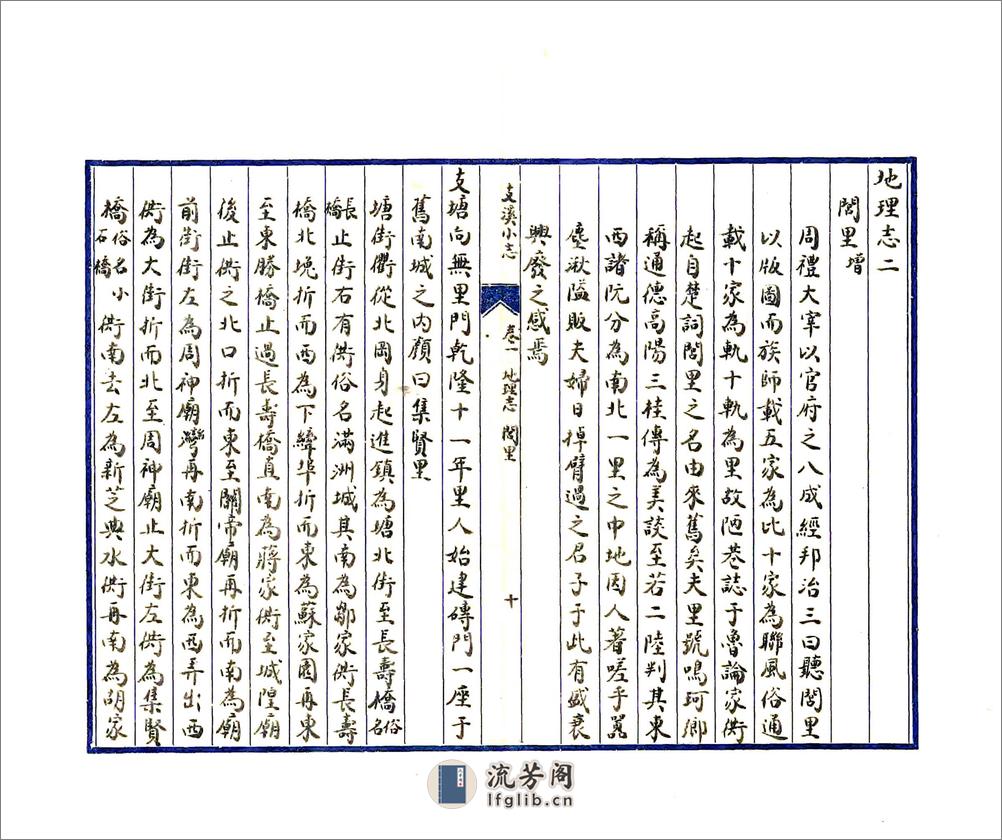 地理志二
閭里增
周禮大宰以官府之八成經邦治三曰聽閭里
以版圖而族師載五家為比十家為聯風俗通
載十家為軌十軌為里故陋巷誌于魯論家衖
起自楚詞閭里之名由來舊矣夫里號鳴珂鄉
稱通德高陽三桂傳為美談至若二陸判其東
西諸阮分為南北一里之中地因人著嗟乎囂
塵湫隘販夫婦日掉臂過之君子于此有盛衰
興廢之感焉
支溪小志 卷一 地理志 閭里 十
支塘向無里門乾隆十一年里人始建磚門一座于
舊南城之內顏曰集賢里
塘街衢從北岡身起進鎮為塘北街至長壽橋俗名
長橋止街右有衖俗名滿洲城其南為鄒家衖長壽
橋北堍折而西為下縴埠折而東為蘇家園再東
至東勝橋止過長壽橋直南為蔣家衖至城隍廟
後止衖之北口折而東至關帝廟再折而南為廟
前街街左為周神廟灣再南折而東為西弄出西
衖為大街折而北至周神廟止大街左衖為集賢
橋俗名石橋小衖南去左為新芝典水衖再南為胡家
流芳阁
lfglib.cn